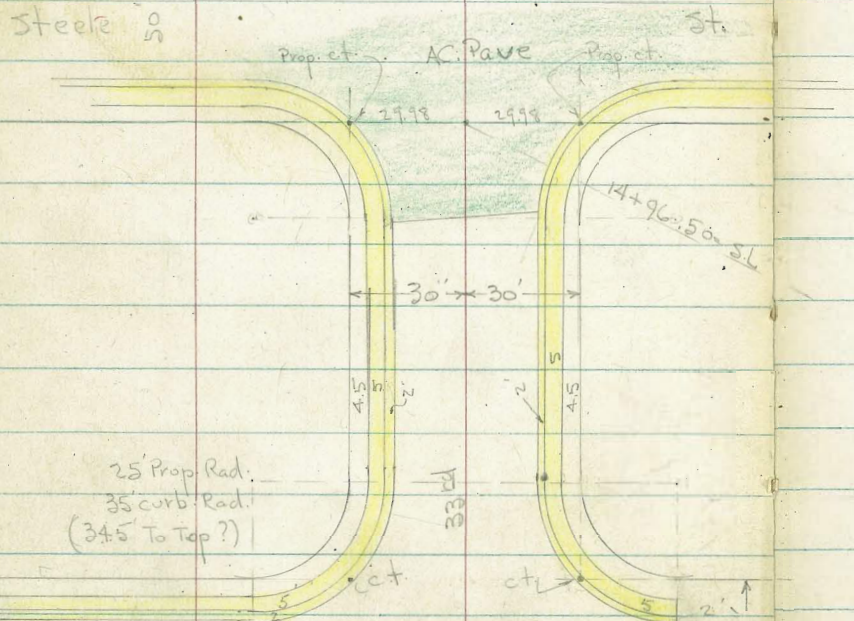 Steele 50' St.
Prop. ct. AC. Pave Prop. ct.
29.98 29.98
14+96.50 S.L
30' 30'
4.5 5 2' 2' 5 4.5
33rd
25' Prop. Rad.
35' curb. Rad.
(34.5' To Top?)
ct ct
5 5 2'
2